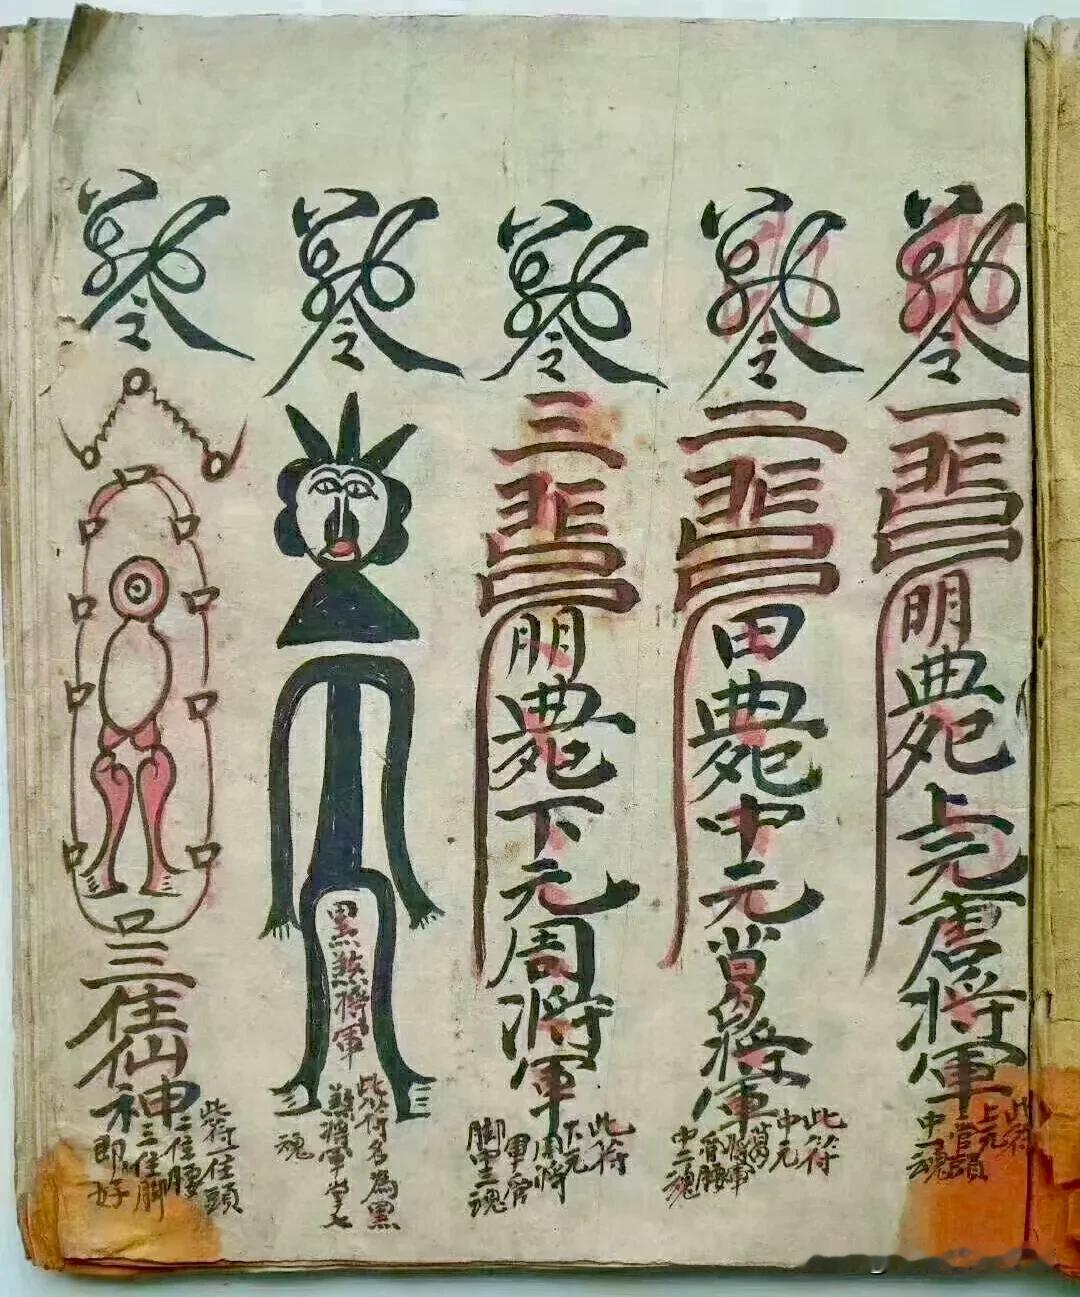 令
一
明
上元唐將軍
此符
上元
管頭
中一魂
令
二
田
中元葛將軍
此符
中元
葛將軍
管腰
中二魂
令
三
朋
下元周將軍
此符
下元
周將
軍管
脚中三魂
令
黑煞將軍
此符名為黑
煞將軍掌七
魂
令
三住仙神
此符一住頭
二住腰
三住脚
即好